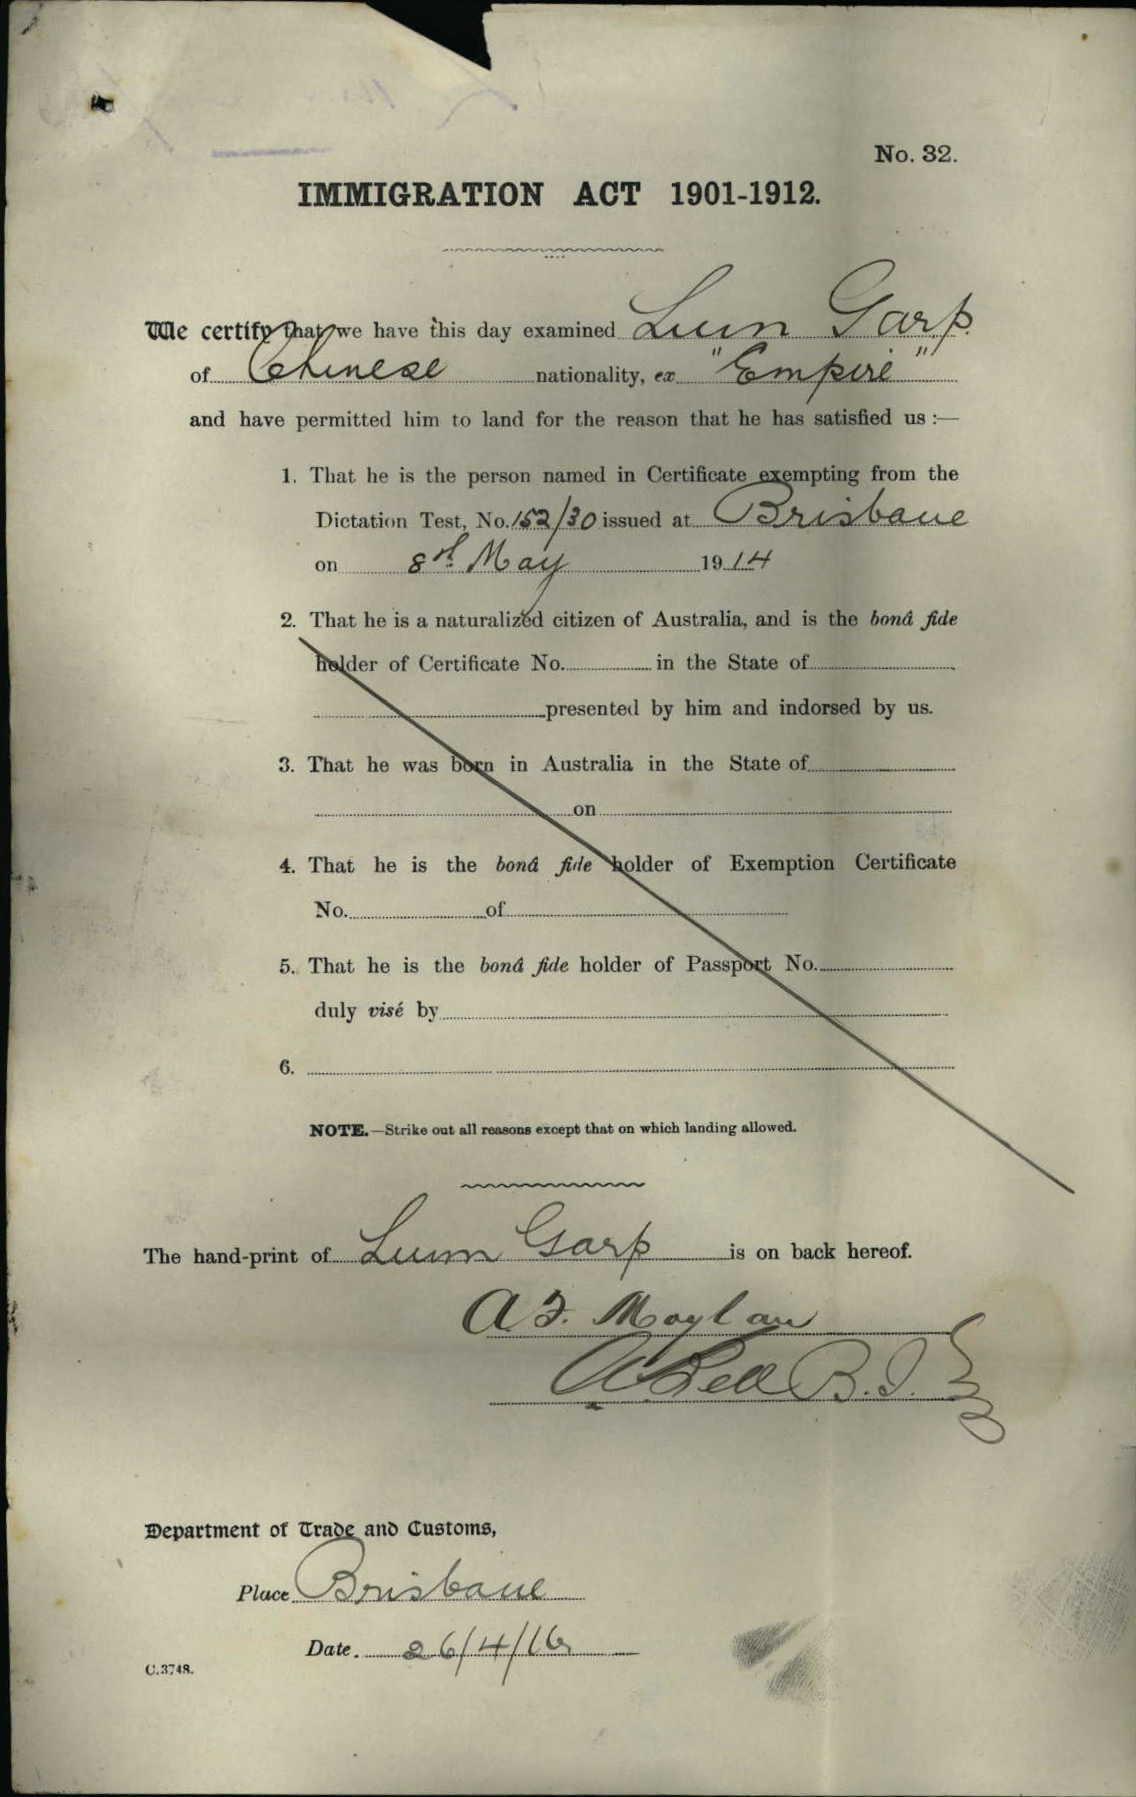 No. 32.
IMMIGRATION ACT 1901-1912.
We certify that we have this day examined Lum Garp.
of Chinese nationality, ex "Empire"
and have permitted him to land for the reason that he has satisfied us :—
1. That he is the person named in Certificate exempting from the
Dictation Test, No. 152/30 issued at Brisbane
on 8th May 1914
2. That he is a naturalized citizen of Australia, and is the bonâ fide
holder of Certificate No. in the State of
presented by him and indorsed by us.
3. That he was born in Australia in the State of
on
4. That he is the bonâ fide holder of Exemption Certificate
No. of
5. That he is the bonâ fide holder of Passport No.
duly visé by
6.
NOTE.—Strike out all reasons except that on which landing allowed.
The hand-print of Lum Garp is on back hereof.
A F. Moylan
Bell B. I.
Department of Trade and Customs,
Place Brisbane
Date. 26/4/16
C.3748.